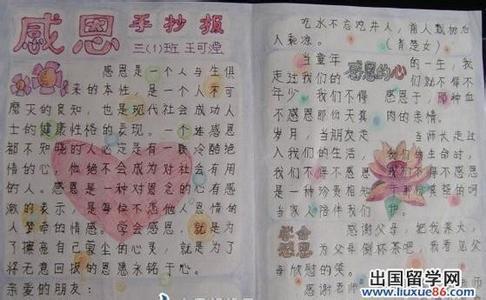 感恩手抄报
三(1)班 王可滢
感恩是一个人与生俱
来的本性,是一个人不可
磨灭的良知,也是现代社会成功人
士的健康性格的表现。一个连感恩
都不知晓的人必定是有一颗冷酷绝
情的心,他绝不会成为对社会有用
的人。感恩是一种对恩惠的心有感
激的表示,是每位不忘他人恩情的
人萦牵的情感。学会感恩,就是为
了擦亮自己蒙尘的心灵,就是为了
将无意回报的恩恩永铭于心。
亲爱的朋友:
吃水不忘挖井人,前人栽树后
人乘凉。(青楚女)
感恩的心
当童年的一生,我
走过我们的们就不得不
年少,我们不得感恩于,那种血
不感恩那份天真肉的亲情。
岁月,当朋友走当师长走过
入我们的生活,我们的生命时,
我们不得不感恩我们不得不感恩
是一种珍贵相知
当家人陪伴我们
学会感恩
感谢父母,把我养大,
为父母倒杯茶吧,我看见父
母欣慰的笑。
感谢老师
出国留学网
www.liuxue86.com